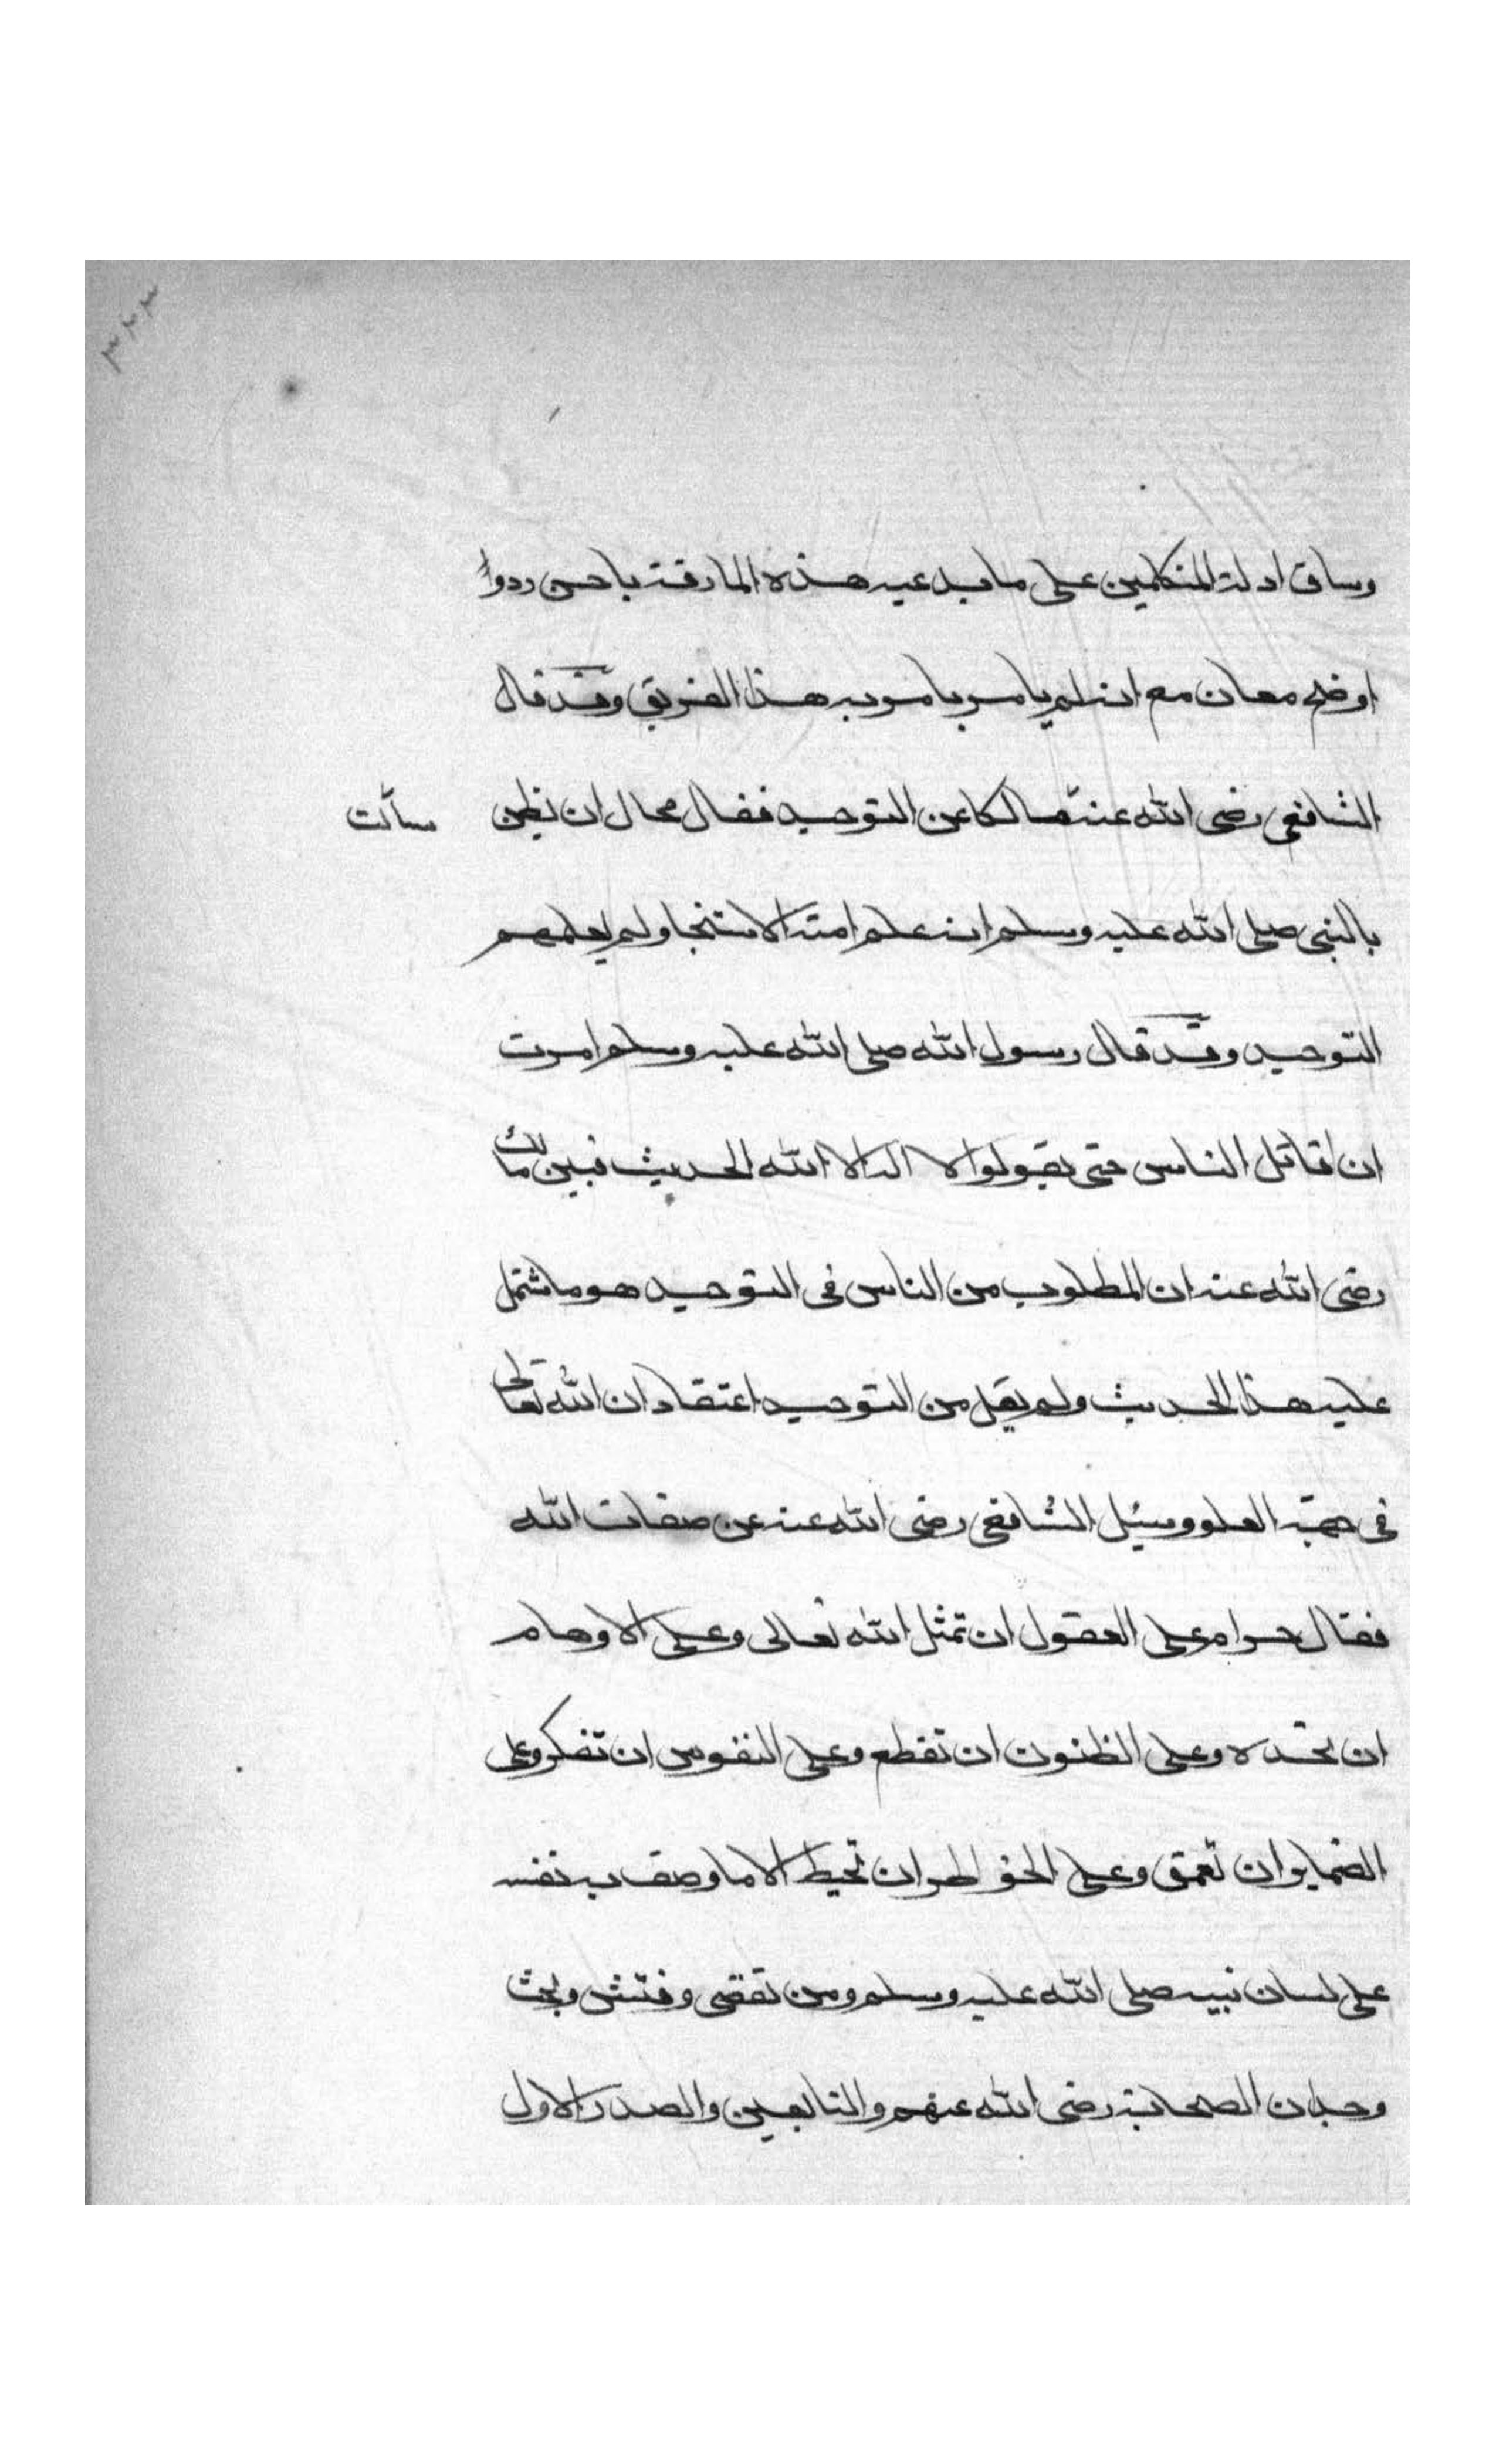 ٣٢٣
وساق ادلة المتكلمين على ما يدعيه هذه المارقة باحسن رد و
اوضح معان مع انه لم يامر بامر به هذا الفريق وقد قال
الشافعي رضي الله عنه مالكا عن التوحيد فقال محال ان نظن سألت
بالنبي صلى الله عليه وسلم انه علم امته الاستنجا ولم يعلمهم
التوحيد وقد قال رسول الله صلى الله عليه وسلم امرت
ان اقاتل الناس حتى يقولوا لا اله الا الله الحديث فبين مالك
رضي الله عنه ان المطلوب من الناس في التوحيد هو ما اشتمل
عليه هذا الحديث ولم يقل من التوحيد اعتقاد ان الله تعالى
في جهة العلو وسئل الشافعي رضي الله عنه عن صفات الله
فقال حرام على العقول ان تمثل الله تعالى وعلى الاوهام
ان تحده وعلى الظنون ان تقطع وعلى النفوس ان تفكر وعلى
الضماير ان تعمق وعلى الخواطر ان تحيط الا ما وصف به نفسه
على لسان نبيه صلى الله عليه وسلم ومن تقصى وفتش وبحث
وجد ان الصحابة رضي الله عنهم والتابعين والصدر الاول